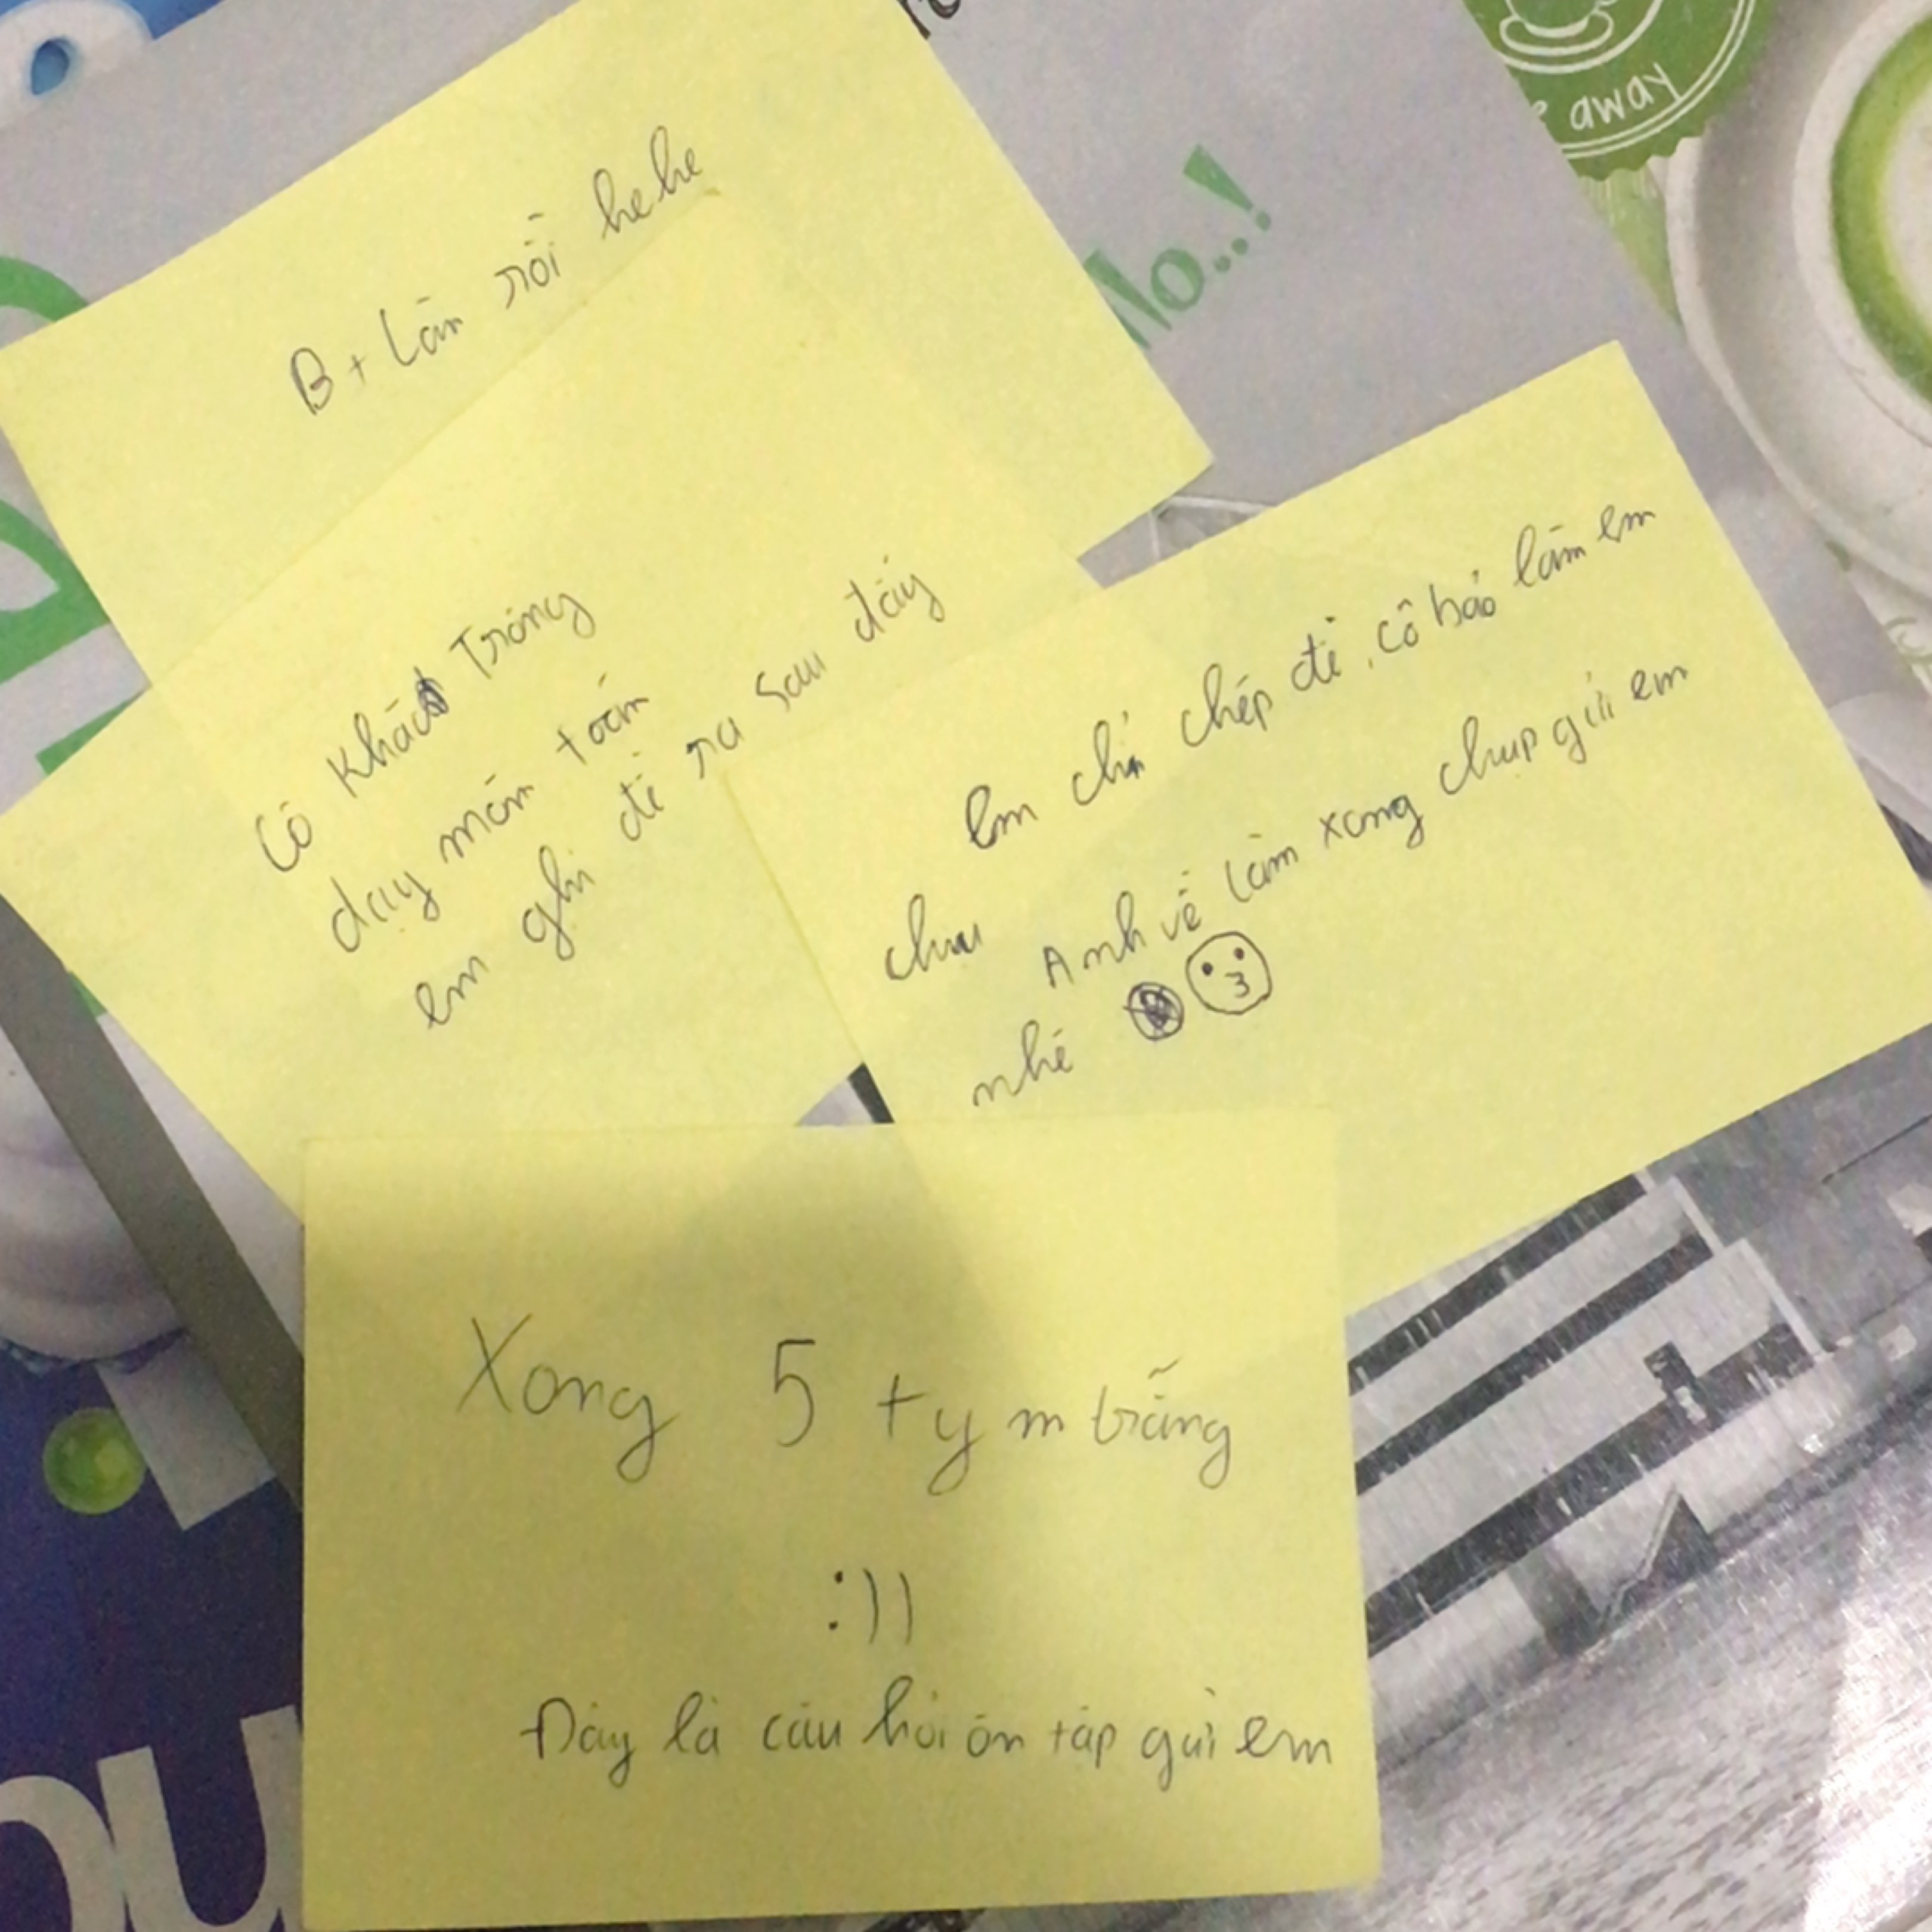 away
No..!
B+ Lần rồi hehe
Cô Khách Trọng
dạy môn toán
em ghi đề ra sau đây
em chỉ chép đề, cô bảo làm em
chưa
Anh về làm xong chụp gửi em
nhé
Xong 5 tym trắng
:))
Đây là câu hỏi ôn tập gửi em
ou